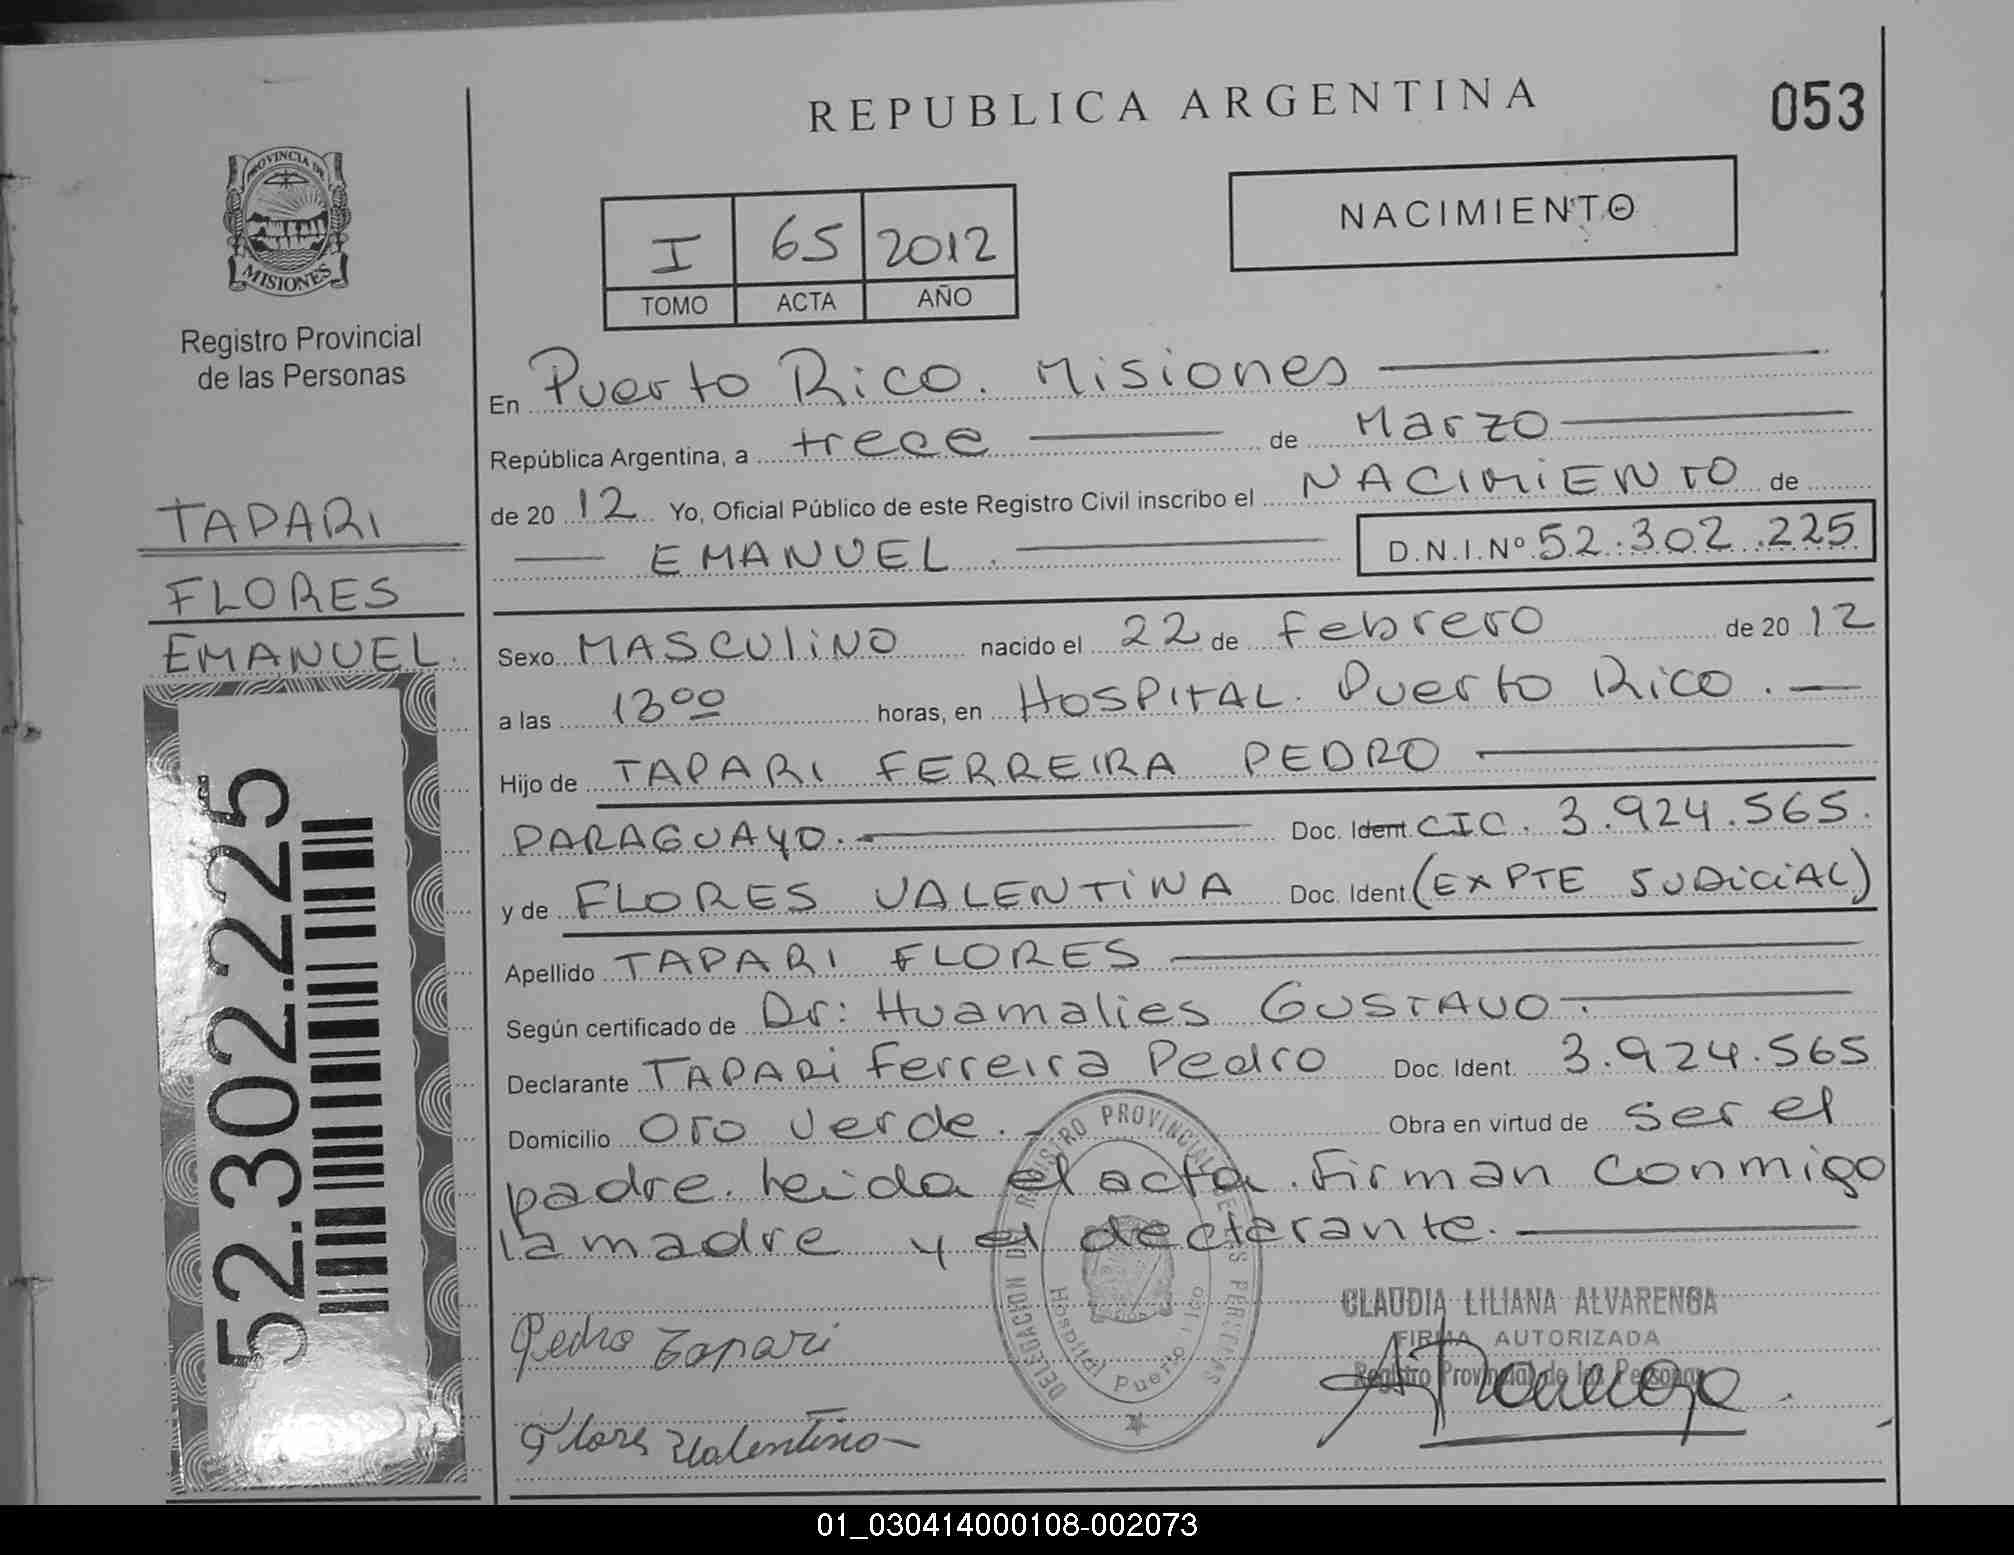 REPUBLICA ARGENTINA
053
PROVINCIA DE
MISIONES
Registro Provincial
de las Personas
I 65 2012
TOMO ACTA AÑO
NACIMIENTO
TAPARI
FLORES
EMANUEL.
52.302.225
En Puerto Rico. Misiones
República Argentina, a trece de Marzo
de 20 12 Yo, Oficial Público de este Registro Civil inscribo el NACIMIENTO de
EMANUEL. D.N.I.Nº 52.302.225
Sexo MASCULINO nacido el 22 de Febrero de 20 12
a las 13 00 horas, en HOSPITAL. Puerto Rico.
Hijo de TAPARI FERREIRA PEDRO
PARAGUAYO. Doc. Ident. CIC. 3.924.565.
y de FLORES VALENTINA Doc. Ident (EXPTE JUDICIAL)
Apellido TAPARI FLORES
Según certificado de Dr: Huamalies GUSTAVO.
Declarante TAPARI Ferreira Pedro Doc. Ident. 3.924.565
Domicilio Oro Verde. Obra en virtud de ser el
padre. Leida el acta. Firman conmigo
la madre y el declarante.
DELEGACION DEL REGISTRO PROVINCIAL DE LAS PERSONAS
Hospital Puerto Rico
CLAUDIA LILIANA ALVARENGA
FIRMA AUTORIZADA
Registro Provincial de las Personas
Pedro Tapari
Flores Valentina
01_030414000108-002073